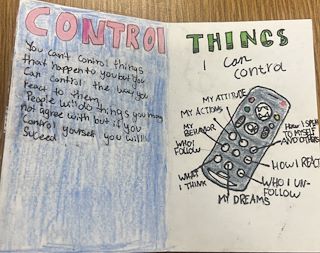 CONTROL
You can't control things
that happen to you but you
can control the way you
react to them.
People will do things you may
not agree with but if you
control yourself you will
suceed
THINGS
I can
control
MY ATTITUDE
MY ACTIONS
MY
BEHAVIOR
WHO I
FOLLOW
WHAT
I THINK
MY DREAMS
HOW I SPEAK
TO MYSELF
AND OTHERS
HOW I REACT
WHO I UN-
FOLLOW